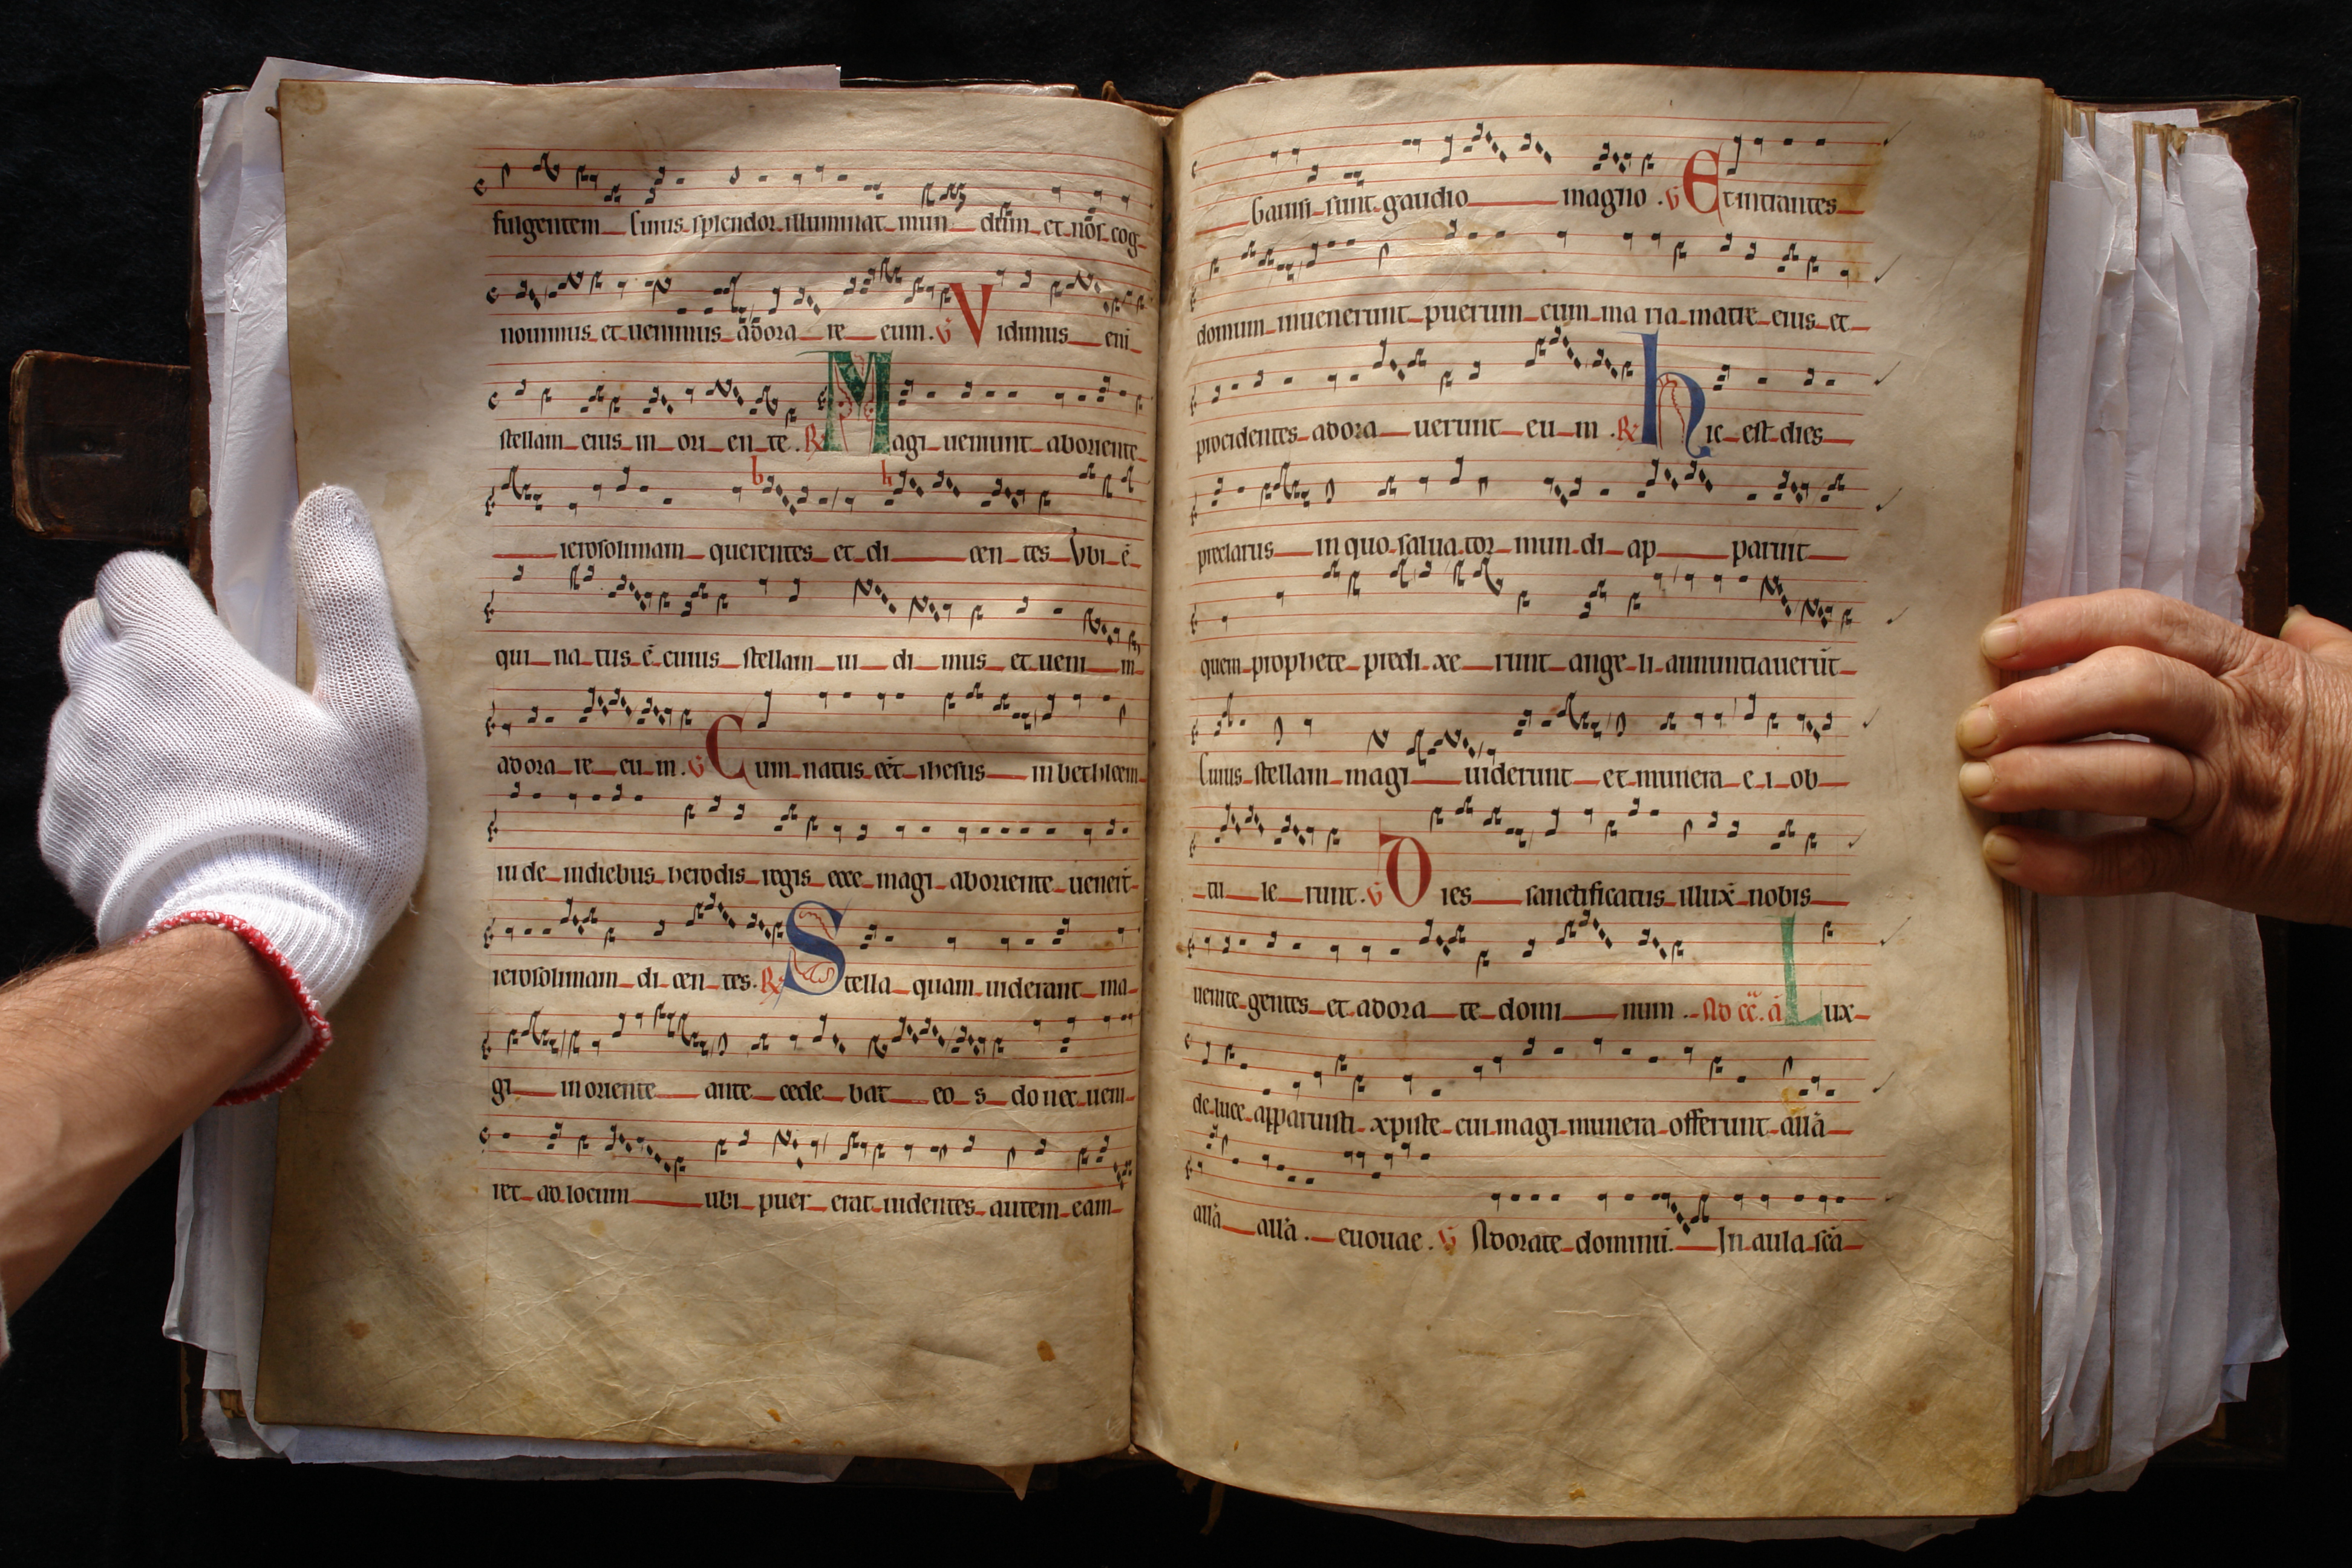 fulgentem cuius splendor illuminat mun dum et nos cog
nouimus et uenimus adora re eum. V Vidimus eni
stellam eius in ori en te. R Magi ueniunt aboriente
ierosolimam querentes et di cen tes Vbi ē
qui na tus ē cuius stellam ui di mus et ueni m
adora re eu m. V Cum natus eēt ihesus in bethleem
iu de indiebus herodis regis ecce magi aboriente uenert̄
ierosolimam di cen tes. R Stella quam uiderant ma
gi in oriente ante cede bat eo s do nec ueni
ret ad locum ubi puer erat uidentes autem eam
Gauisi sunt gaudio magno. V Et intrantes
domum inuenerunt puerum cum ma ria matre eius et
procidentes adora uerunt eu m. R hic est dies
preclarus in quo salua tor mun di ap paruit
quem prophete predi xe runt ange li annuntiauerūt
Cuius stellam magi uiderunt et munera e i ob
tu le runt. V Dies sanctificatus illux̄ nobis
uenite gentes et adora te domi num. Ad cē. ā Lux
de luce apparuisti xpiste cui magi munera offerunt allā
allā allā. euouae. V Adorate dominū. In aula scā